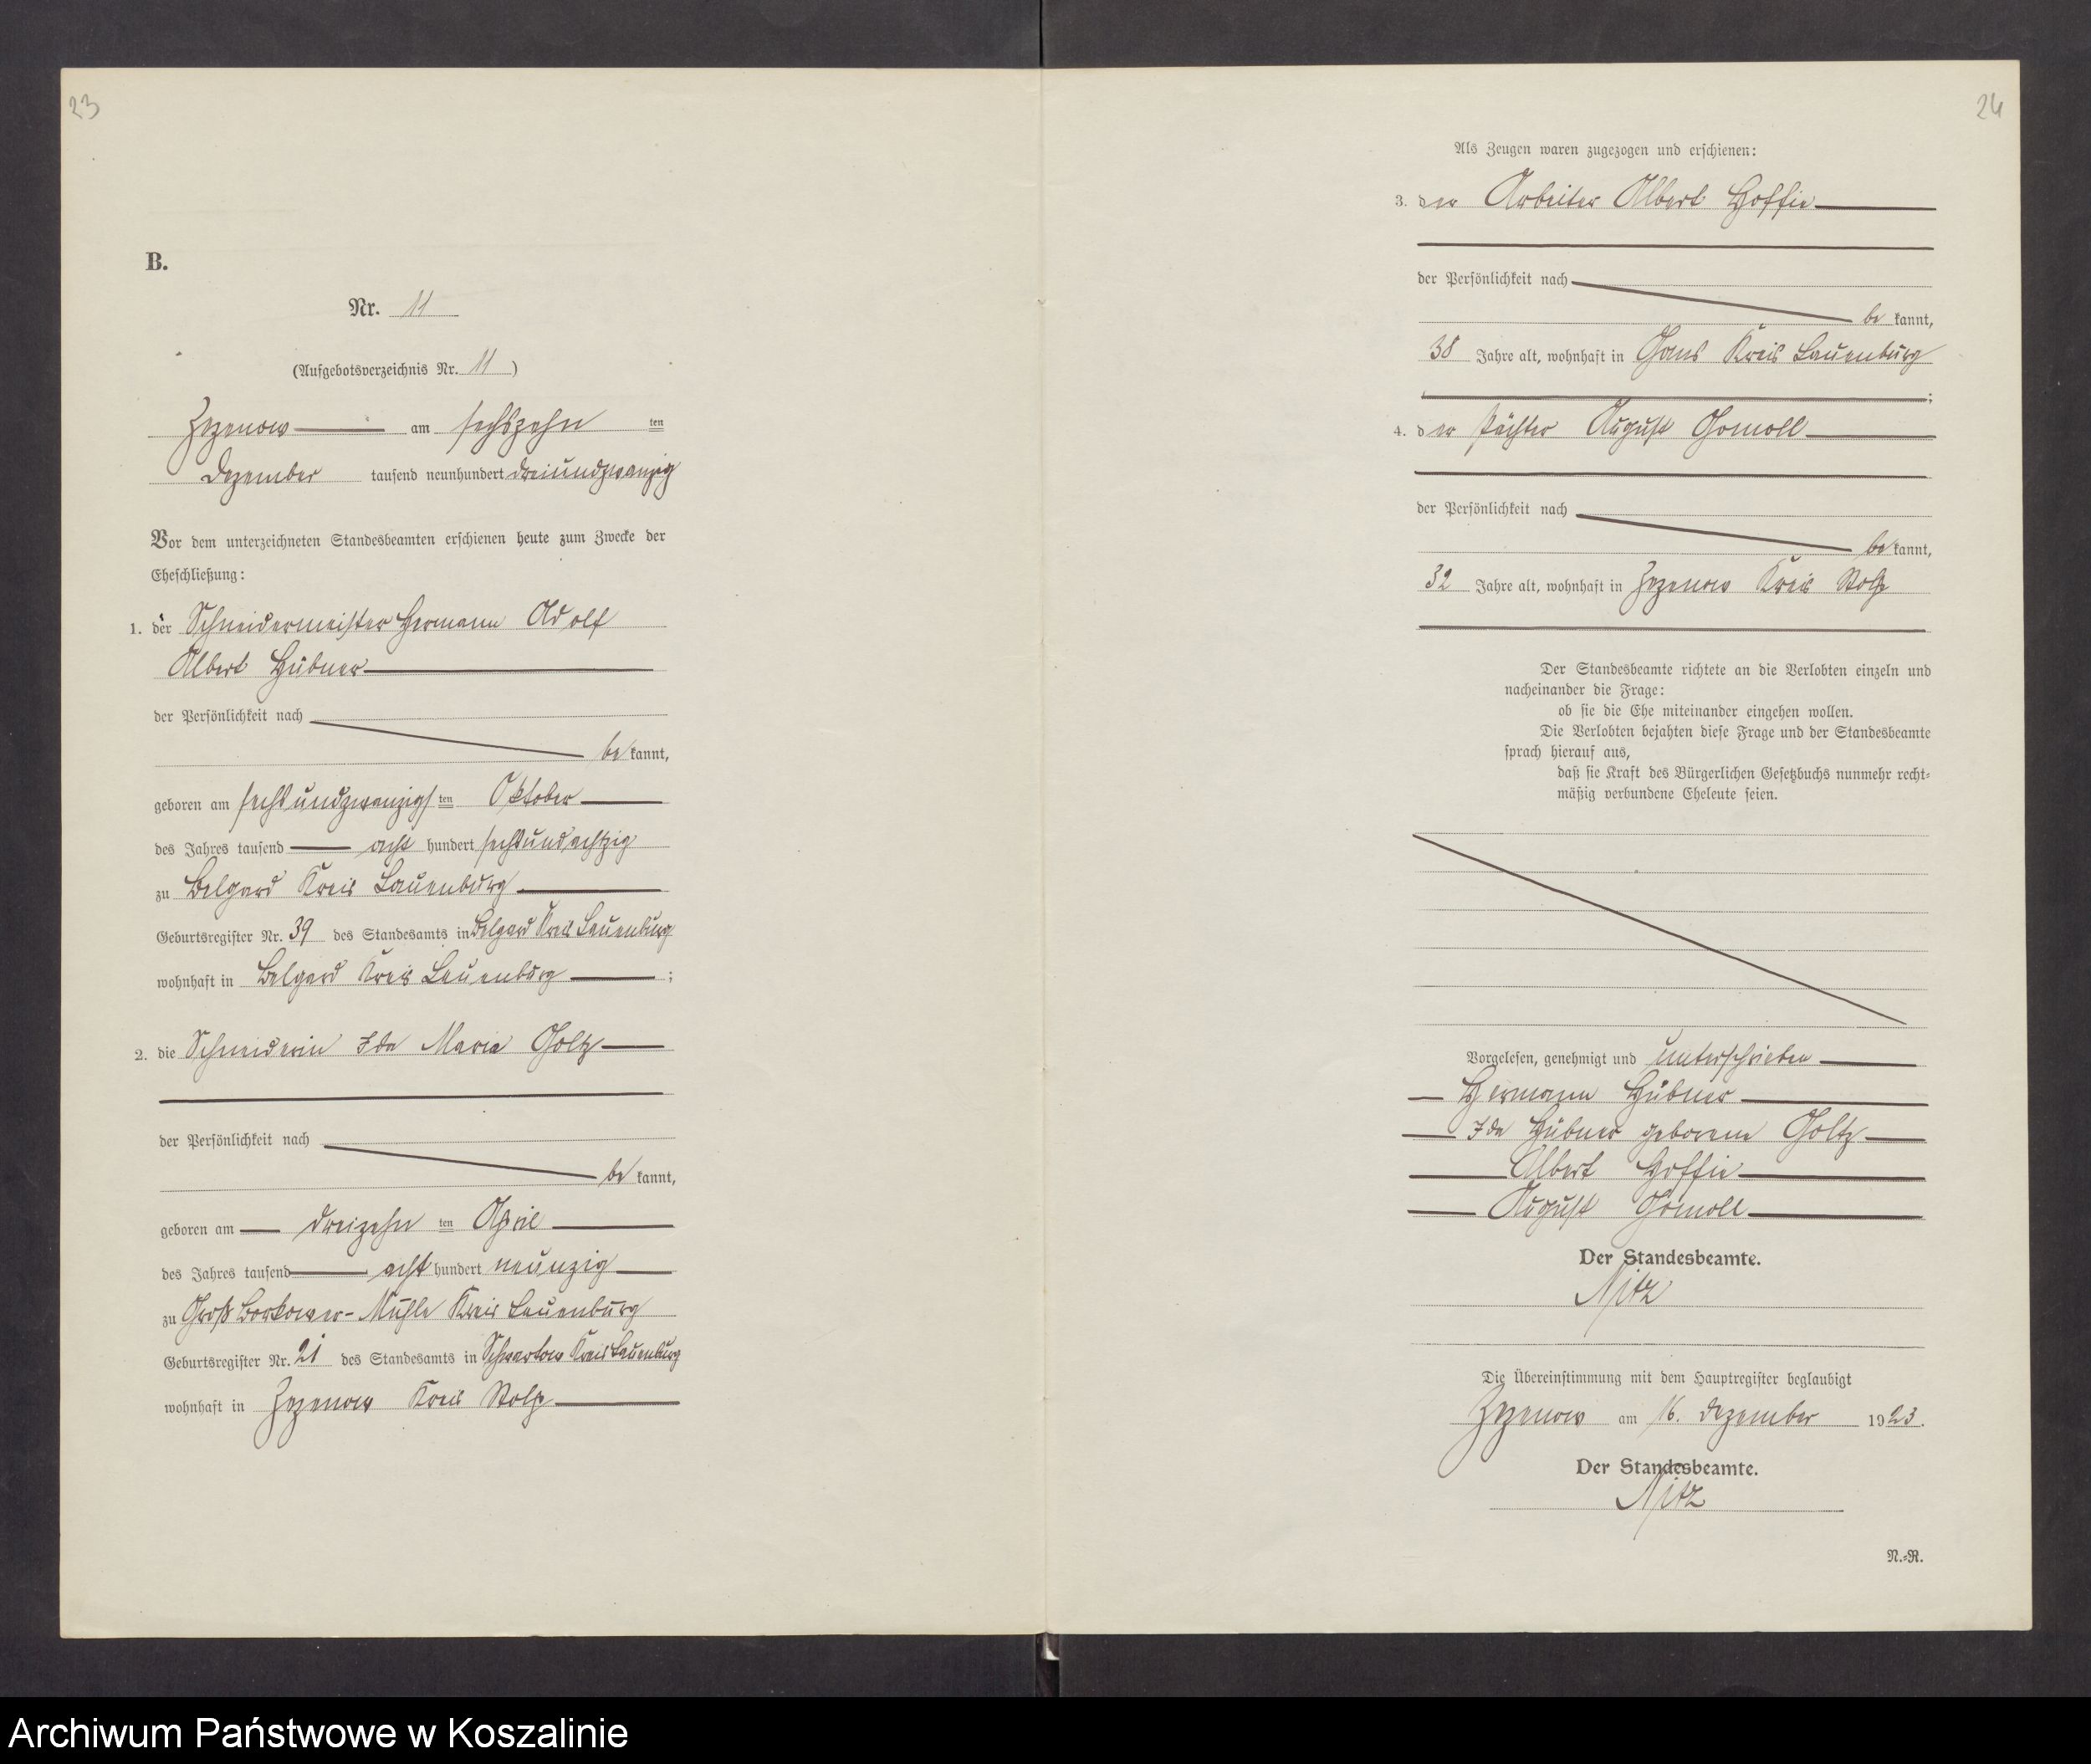 23
B.
Nr. 11
(Aufgebotsverzeichnis Nr. 11)
Zezenow am sechszehn ten
Dezember tausend neunhundert dreiundzwanzig
Vor dem unterzeichneten Standesbeamten erschienen heute zum Zwecke der
Eheschließung:
1. der Schneidermeister Hermann Adolf
Albert Hübner
der Persönlichkeit nach
be kannt,
geboren am sechsundzwanzigs ten Oktober
des Jahres tausend acht hundert sechsundachtzig
zu Belgard Kreis Lauenburg
Geburtsregister Nr. 39 des Standesamts in Belgard Kreis Lauenburg
wohnhaft in Belgard Kreis Lauenburg ;
2. die Schneiderin Ida Maria Goltz
der Persönlichkeit nach
be kannt,
geboren am dreizehn ten April
des Jahres tausend acht hundert neunzig
zu Groß Borkower-Mühle Kreis Lauenburg
Geburtsregister Nr. 21 des Standesamts in Schwartow Kreis Lauenburg
wohnhaft in Zezenow Kreis Stolp
24
Als Zeugen waren zugezogen und erschienen:
3. der Arbeiter Albert Hoffie
der Persönlichkeit nach
be kannt,
38 Jahre alt, wohnhaft in Gans Kreis Lauenburg
;
4. der Pächter August Gomoll
der Persönlichkeit nach
be kannt,
32 Jahre alt, wohnhaft in Zezenow Kreis Stolp
Der Standesbeamte richtete an die Verlobten einzeln und
nacheinander die Frage:
ob sie die Ehe miteinander eingehen wollen.
Die Verlobten bejahten diese Frage und der Standesbeamte
sprach hierauf aus,
daß sie Kraft des Bürgerlichen Gesetzbuchs nunmehr recht-
mäßig verbundene Eheleute seien.
Vorgelesen, genehmigt und unterschrieben
Hermann Hübner
Ida Hübner geborene Goltz
Albert Hoffie
August Gomoll
Der Standesbeamte.
Nitz
Die Übereinstimmung mit dem Hauptregister beglaubigt
Zezenow am 16. Dezember 1923.
Der Standesbeamte.
Nitz
N.-R.
Archiwum Państwowe w Koszalinie